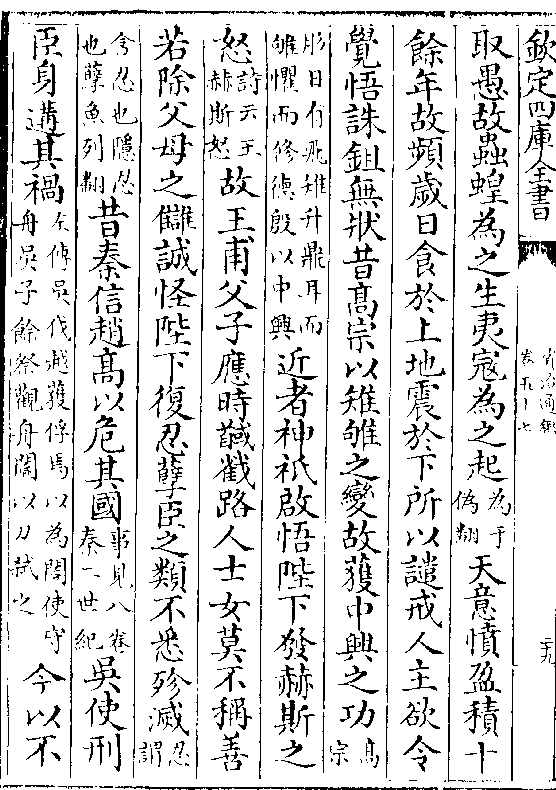 欽定四庫全書
資治通鑑
卷五十七
二九
取愚故蟲蝗為之生夷寇為之起為于偽翻天意憤盈積十
餘年故頻歲日食於上地震於下所以譴戒人主欲令
覺悟誅鉏無狀昔高宗以雉雊之變故獲中興之功高宗
肜日有飛雉升鼎耳而雊懼而修德殷以中興近者神祇啟悟陛下發赫斯之
怒詩云王赫斯怒故王甫父子應時馘截路人士女莫不稱善
若除父母之讎誠怪陛下復忍孽臣之類不悉殄滅忍謂
含忍也隱忍也孽魚列翻昔秦信趙高以危其國事見八卷秦二世紀吳使刑
臣身遘其禍左傳吳伐越獲俘焉以為閽使守舟吳子餘祭觀舟閽以刀弒之今以不